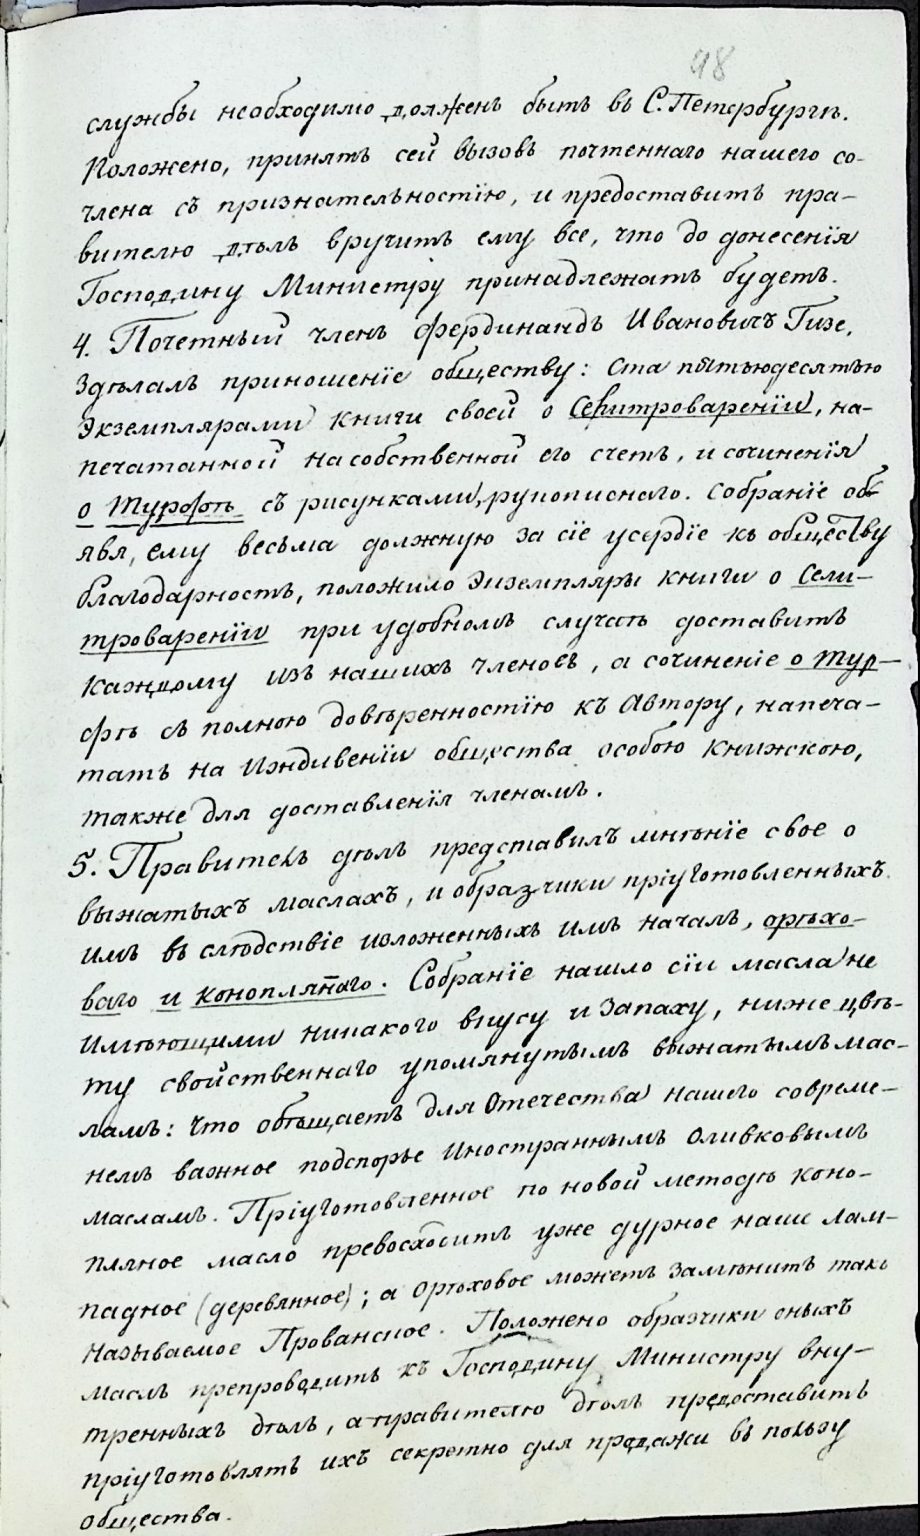 48
службы необходимо должен быть въ С. Петербургѣ.
Положено, принять сей вызовъ почтеннаго нашего со-
члена съ признательностію, и предоставить пра-
вителю дѣлъ вручить ему все, что до донесенія
Господину Министру принадлежать будетъ.
4. Почетный членъ Фердинандъ Ивановичъ Гизе,
здѣлалъ приношеніе обществу: ста пятьюдесятью
экземплярами книги своей о Селитровареніи, на-
печатанной на собственной его счетъ, и сочиненія
о Турфѣ съ рисунками, рукописнаго. Собраніе объ
явя, ему весьма должную за сіе усердіе къ обществу
благодарность, положило экземпляры книги о Сели-
тровареніи при удобномъ случаѣ доставить
каждому изъ нашихъ членовъ, а сочиненіе о Тур-
фѣ съ полною довѣренностію къ Автору, напеча-
тать на Иждивеніи общества особою книжкою,
также для доставленія членамъ.
5. Правитель дѣлъ представилъ мнѣніе свое о
выжатыхъ маслахъ, и образчики пріуготовленныхъ
имъ въ слѣдствіе изложенныхъ имъ началъ, орѣхо-
ваго и коноплянаго. Собраніе нашло сіи масла не
имѣющими никакого вкусу и запаху, ниже цвѣ-
ту свойственнаго упомянутымъ выжатымъ мас-
ламъ: что обѣщаетъ для Отечества нашего совреме-
немъ важное подспорье Иностраннымъ оливковымъ
масламъ. Пріуготовленное по новой методѣ коно-
пляное масло превосходитъ уже дурное наше лам-
падное (деревянное); а орѣховое можетъ замѣнить такъ
называемое Прованское. Положено образчики оныхъ
маслъ препроводить къ Господину Министру вну-
тренныхъ дѣлъ, а правителю дѣлъ предоставить
пріуготовлять ихъ секретно для продажи въ пользу
общества.